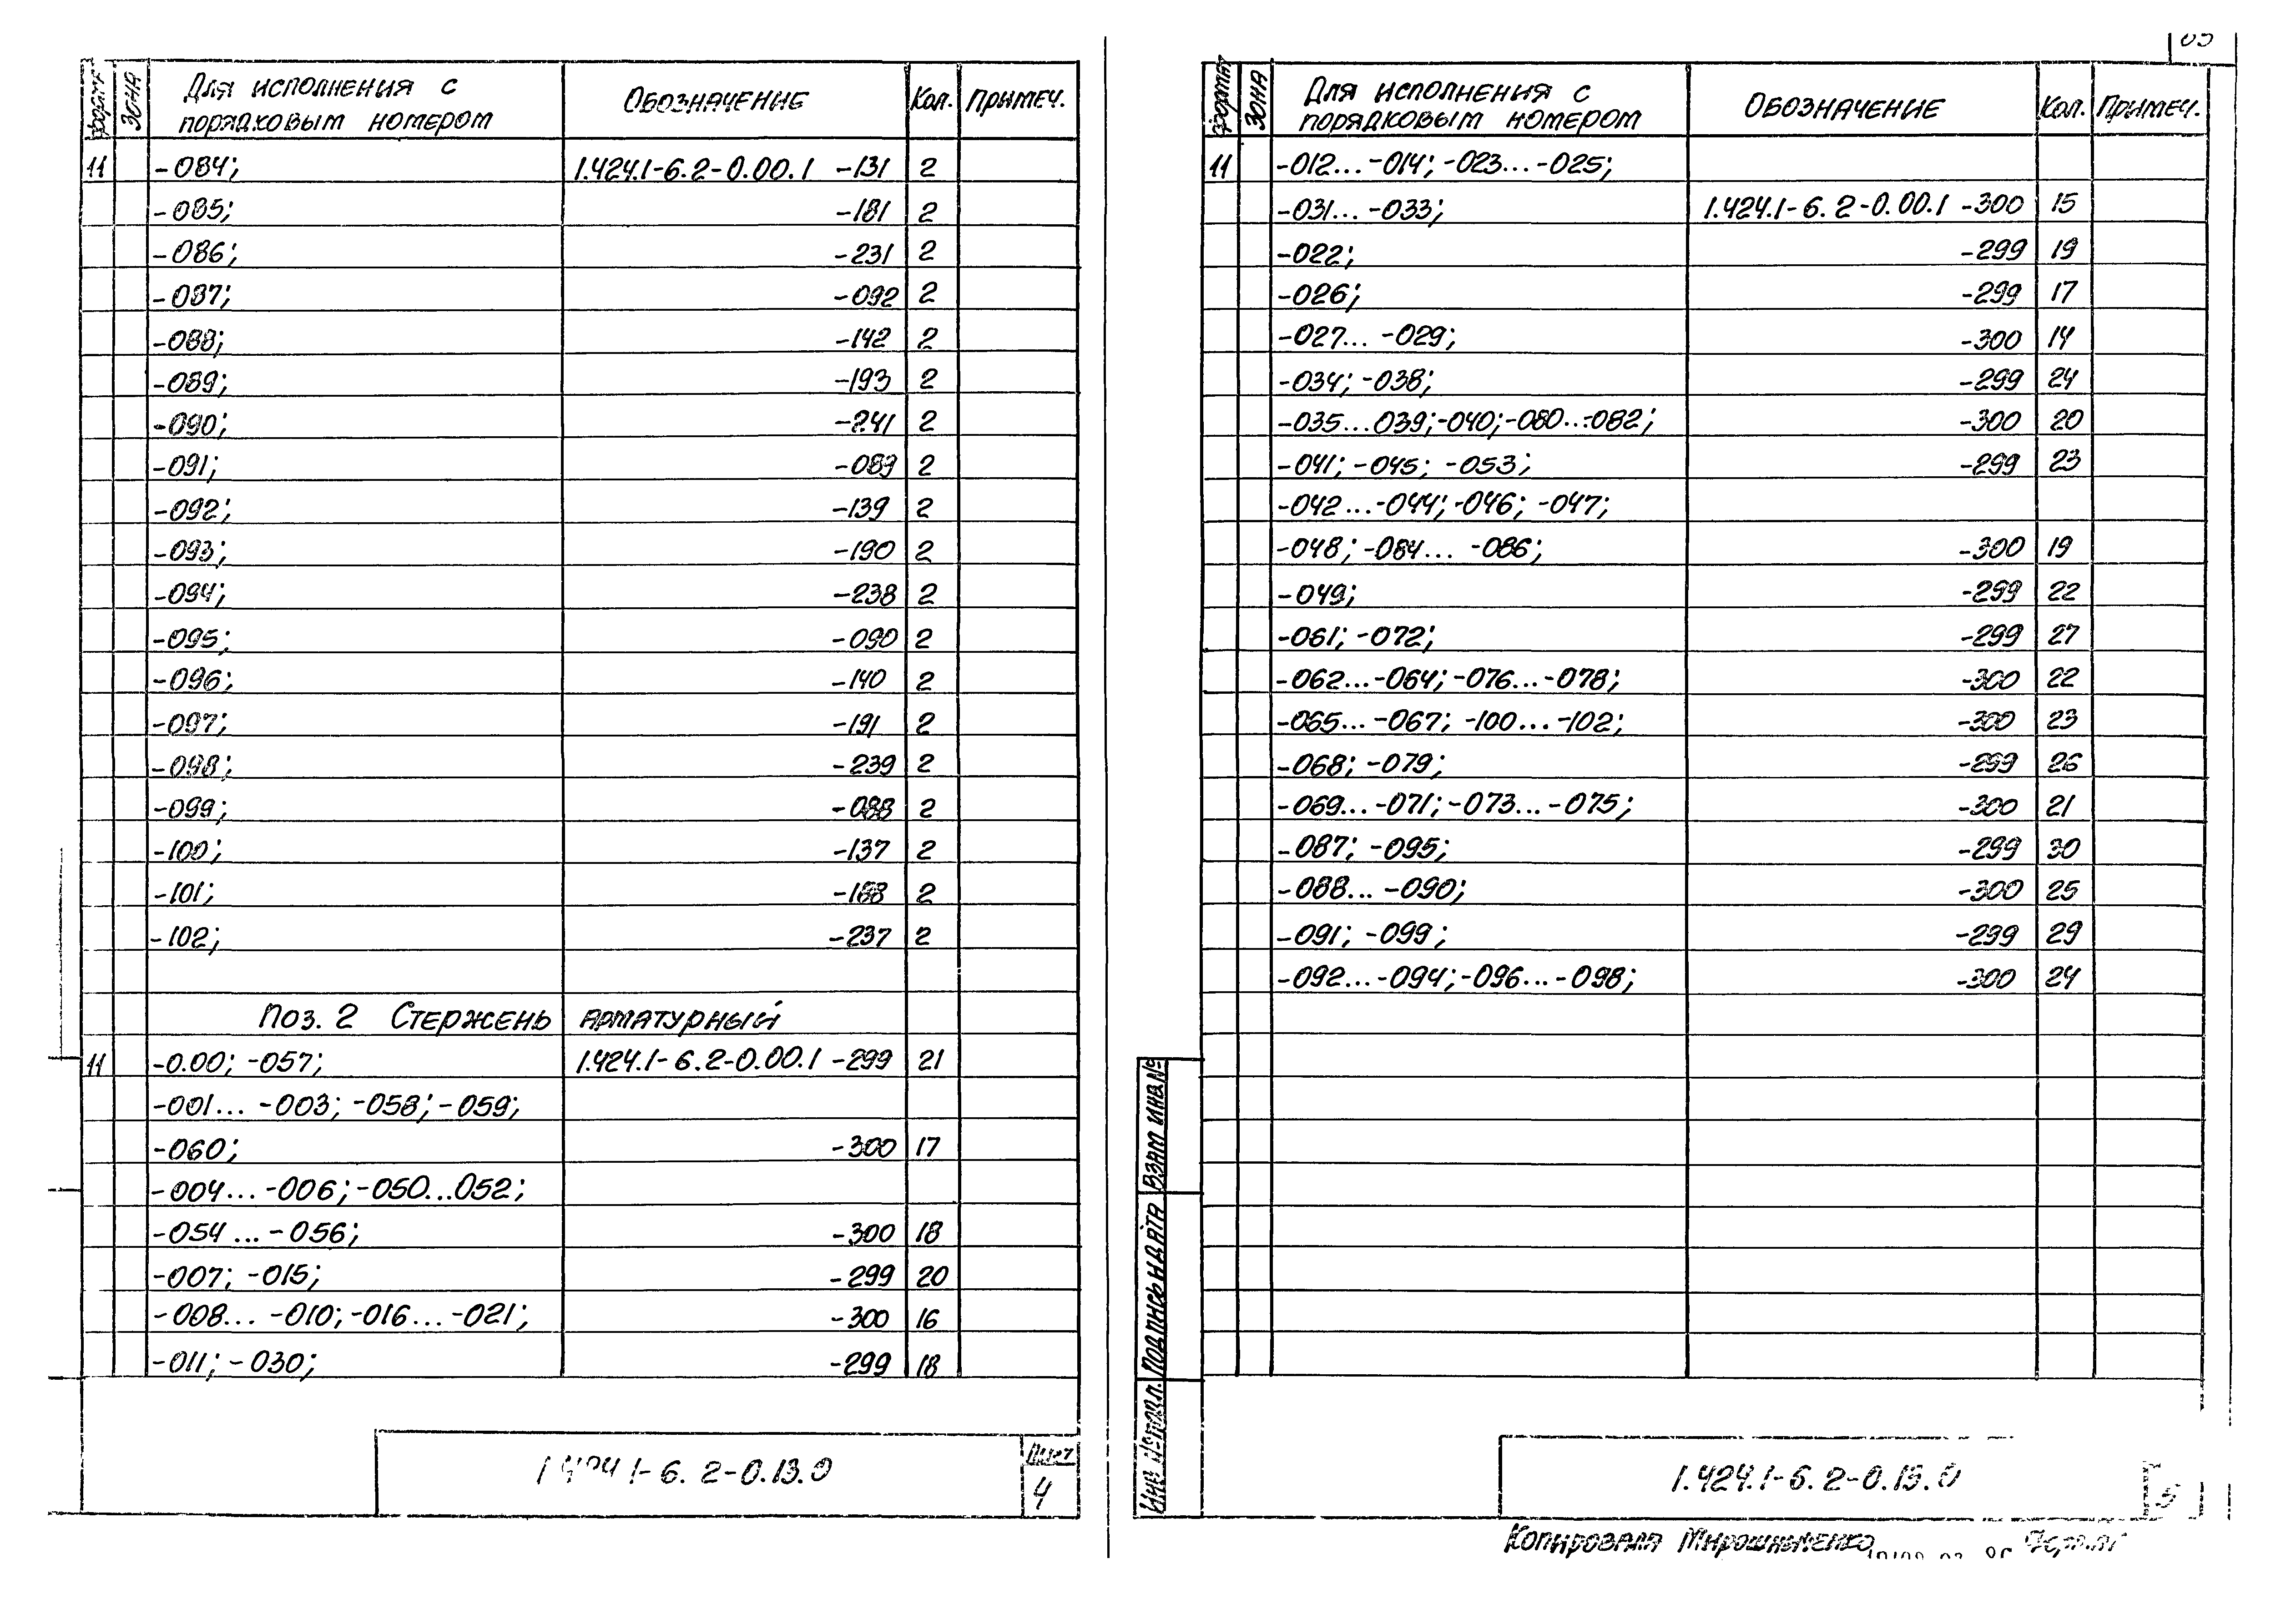 Формат Зона Для исполнения с порядковым номером Обозначение Кол. Примеч.
11 -084; 1.424.1-6.2-0.00.1 -131 2
-085; -181 2
-086; -231 2
-087; -092 2
-088; -142 2
-089; -193 2
-090; -241 2
-091; -089 2
-092; -139 2
-093; -190 2
-094; -238 2
-095; -090 2
-096; -140 2
-097; -191 2
-098; -239 2
-099; -088 2
-100; -137 2
-101; -188 2
-102; -237 2
Поз. 2 Стержень арматурный
11 -0.00; -057; 1.424.1-6.2-0.00.1 -299 21
-001... -003; -058; -059;
-060; -300 17
-004... -006; -050...052;
-054 ... -056; -300 18
-007; -015; -299 20
-008... -010; -016... -021; -300 16
-011; -030; -299 18
1.424.1-6.2-0.13.0
Лист
4
Формат Зона Для исполнения с порядковым номером Обозначение Кол. Примеч.
11 -012... -014; -023... -025;
-031... -033; 1.424.1-6.2-0.00.1 -300 15
-022; -299 19
-026; -299 17
-027... -029; -300 14
-034; -038; -299 24
-035...039; -040; -080...-082; -300 20
-041; -045; -053; -299 23
-042...-044; -046; -047;
-048; -084... -086; -300 19
-049; -299 22
-061; -072; -299 27
-062...-064; -076...-078; -300 22
-065... -067; -100...-102; -300 23
-068; -079; -299 26
-069...-071; -073...-075; -300 21
-087; -095; -299 30
-088... -090; -300 25
-091; -099; -299 29
-092...-094; -096...-098; -300 24
Взам инв №
Подпись и дата
Инв № подл.
1.424.1-6.2-0.13.0
5
Копировала Мирошниченко